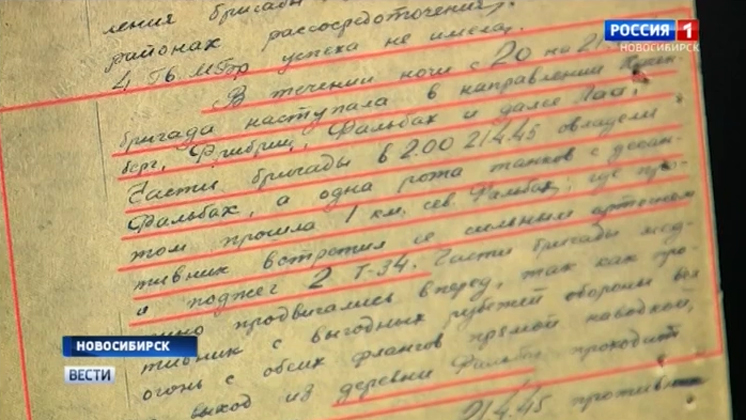 ления бригады
районах рассосредоточения,
4 Гв МБр успеха не имела.
В течении ночи с 20 на 21.
бригада наступала в направлении
берг, Фрибриц, Фальбах и далее Лаа,
Части бригады в 2.00 21.4.45 овладели
Фальбах, а одна рота танков с десан-
том прошла 1 км. сев. Фальбах, где про-
тивник встретил ее сильным артогнем
и поджег 2 Т-34. Части бригады мед-
продвигались вперед, так как про-
тивник с выгодных рубежей обороны вел
огонь с обоих флангов прямой наводкой,
выход из деревни проходит
21.4.45 противник
РОССИЯ 1
НОВОСИБИРСК
НОВОСИБИРСК
ВЕСТИ